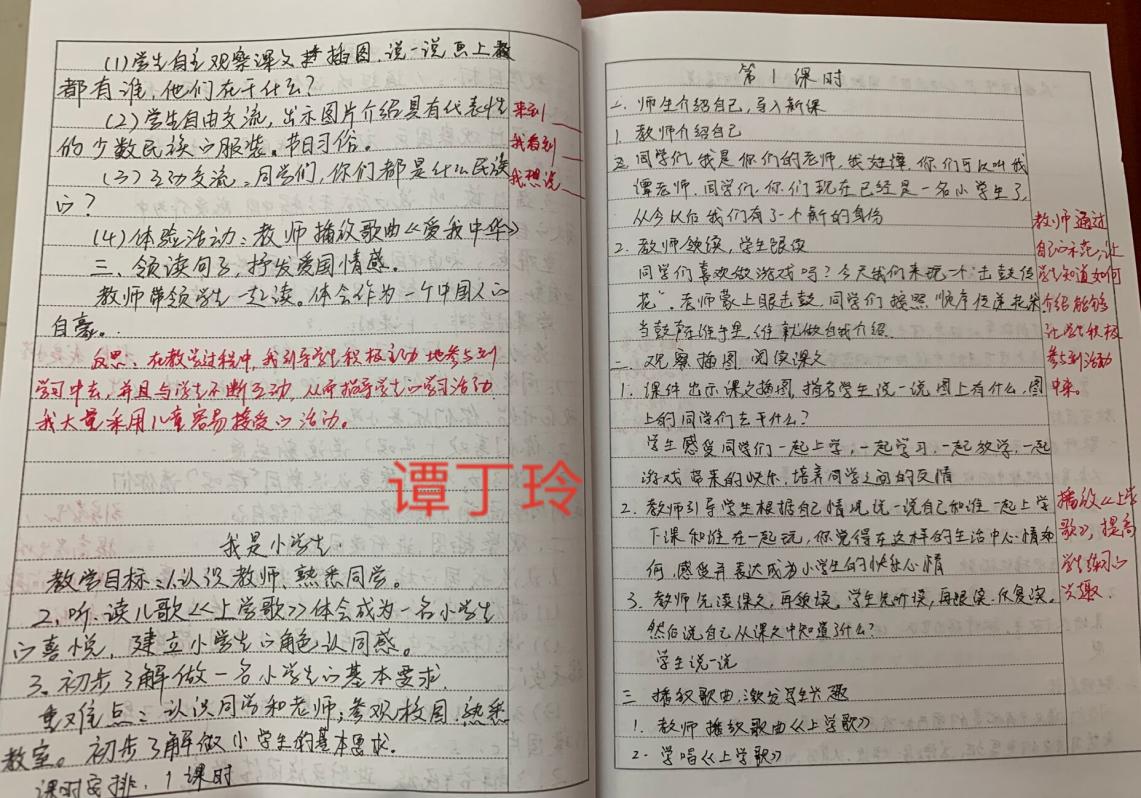 (1)学生自主观察课文插图,说一说画上
都有谁,他们在干什么?
(2)学生自由交流,出示图片介绍具有代表性
的少数民族的服装、节日习俗。
(3)互动交流:同学们,你们都是什么民族
的?
(4)体验活动:教师播放歌曲《爱我中华》
三、领读句子,抒发爱国情感。
教师带领学生一起读。体会作为一个中国人的
自豪。
来到
我看到
我想说
反思:在教学过程中,我引导学生积极主动地参与到
学习中去,并且与学生不断互动,从而指导学生的学习活动
我大量采用儿童容易接受的活动。
谭丁玲
我是小学生.
教学目标:1.认识教师、熟悉同学。
2、听、读儿歌《上学歌》体会成为一名小学生
的喜悦,建立小学生的角色认同感。
3、初步了解做一名小学生的基本要求
重难点:认识同学和老师;参观校园,熟悉
教室。初步了解做小学生的基本要求.
课时安排:1课时
第1课时
一、师生介绍自己,导入新课
1.教师介绍自己
同学们,我是你们的老师,我姓谭,你们可以叫我
谭老师.同学们,你们现在已经是一名小学生了,
从今以后我们有了一个新的身份
2.教师领读,学生跟做
同学们喜欢做游戏吗?今天我们来玩一个"击鼓传
花",老师蒙上眼击鼓,同学们按照顺序传递花朵
当鼓声在谁手里,谁就做自我介绍.
二、观察插图,阅读课文
1.课件出示课文插图,指名学生说一说图上有什么,图
上的同学们去干什么?
学生感受同学们一起上学,一起学习,一起放学,一起
游戏带来的快乐,培养同学之间的友情
2.教师引导学生根据自己情况说一说自己和谁一起上学
下课和谁在一起玩,你觉得在这样的生活中心情如
何,感受并表达成为小学生的快乐心情
3.教师先读课文,再领读,学生先听读,再跟读,反复读,
然后说自己从课文中知道了什么?
学生说一说
三、播放歌曲,激发学生兴趣
1.教师播放歌曲《上学歌》
2.学唱《上学歌》
教师通过
自己的示范,让
学生知道如何
介绍能够
让学生积极
参与到活动
中来。
播放《上学
歌》,提高
学生练习的
兴趣